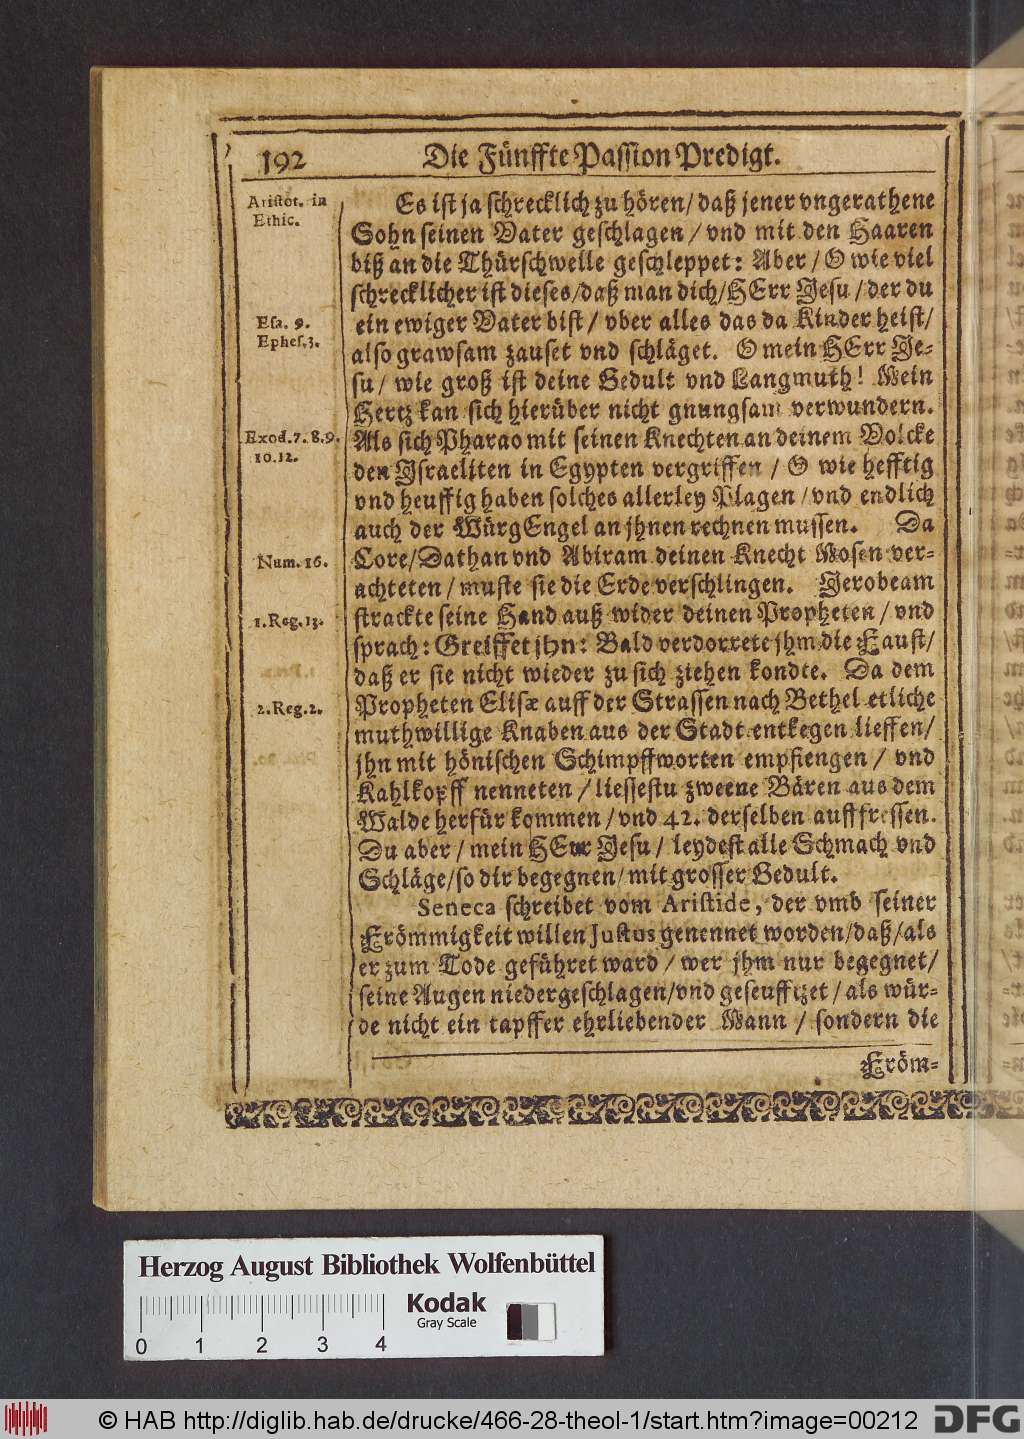 192
Die Fünffte Passion Predigt.
Aristot. in
Ethic.
Es ist ja schrecklich zu hören / daß jener vngerathene
Sohn seinen Vater geschlagen / vnd mit den Haaren
biß an die Thürschwelle geschleppet: Aber / O wie viel
schrecklicher ist dieses / daß man dich / HErr Jesu / der du
Esa. 9.
Ephes. 3.
ein ewiger Vater bist / vber alles das da Kinder heist /
also grawsam zauset vnd schläget. O mein HErr Je-
su / wie groß ist deine Gedult vnd Langmuth! Mein
Hertz kan sich hierüber nicht gnungsam verwundern.
Exod. 7. 8. 9.
10. 12.
Als sich Pharao mit seinen Knechten an deinem Volcke
den Israeliten in Egypten vergriffen / O wie hefftig
vnd heuffig haben solches allerley Plagen / vnd endlich
auch der WürgEngel an jhnen rechnen mussen. Da
Num. 16.
Core / Dathan vnd Abiram deinen Knecht Mosen ver-
achteten / muste sie die Erde verschlingen. Jerobeam
1. Reg. 13.
strackte seine Hand auß wider deinen Propheten / vnd
sprach: Greiffet jhn: Bald verdorrete jhm die Faust /
daß er sie nicht wieder zu sich ziehen kondte. Da dem
2. Reg. 2.
Propheten Elisæ auff der Strassen nach Bethel etliche
muthwillige Knaben aus der Stadt entkegen lieffen /
jhn mit hönischen Schimpffworten empfiengen / vnd
Kahlkopff nenneten / liessestu zweene Bären aus dem
Walde herfür kommen / vnd 42. derselben aufffressen.
Du aber / mein HErr Jesu / leydest alle Schmach vnd
Schläge / so dir begegnen / mit grosser Gedult.
Seneca schreibet vom Aristide, der vmb seiner
Frömmigkeit willen Justus genennet worden / daß / als
er zum Tode geführet ward / wer jhm nur begegnet /
seine Augen niedergeschlagen / vnd geseufftzet / als wür-
de nicht ein tapffer ehrliebender Mann / sondern die
Fröm-
Herzog August Bibliothek Wolfenbüttel
Kodak
Gray Scale
0 1 2 3 4
© HAB http://diglib.hab.de/drucke/466-28-theol-1/start.htm?image=00212
DFG